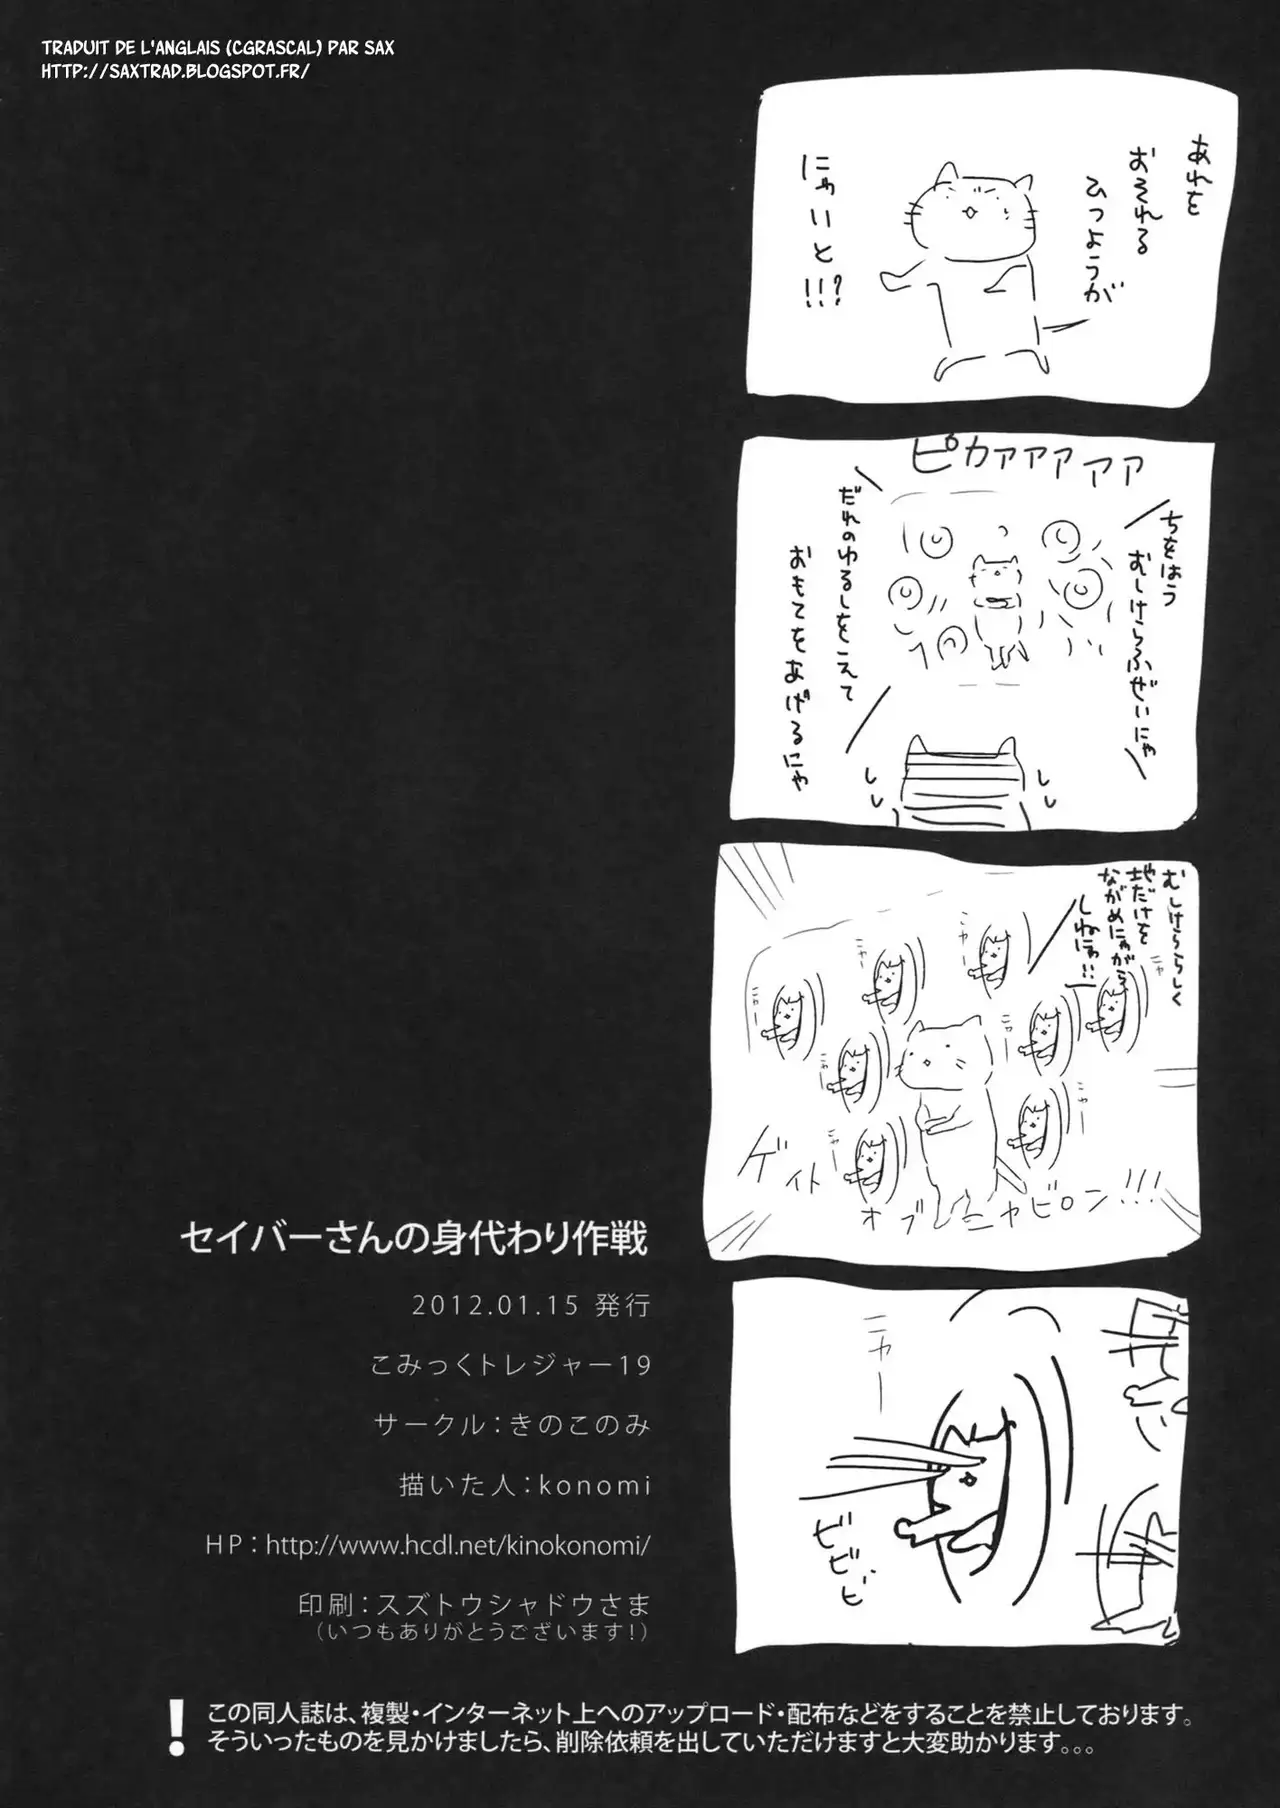 TRADUIT DE L'ANGLAIS (CGRASCAL) PAR SAX
HTTP://SAXTRAD.BLOGSPOT.FR/
あれを
おそれる
ひつようが
にゃいと!!?
ピカァァァァァ
ちをはう
むしけらふぜいにゃ
だれのゆるしをえて
おもてをあげるにゃ
むしけららしく
地だけを
ながめにゃがら
しねにゃ!!
ニャー
ニャー
ニャー
ニャー
ニャー
ニャー
ニャー
ニャー
ゲイト
オブニャビロン!!!
ニャー
ビビビ
セイバーさんの身代わり作戦
2012.01.15 発行
こみっくトレジャー19
サークル：きのこのみ
描いた人：konomi
HP：http://www.hcdl.net/kinokonomi/
印刷：スズトウシャドウさま
（いつもありがとうございます！）
! この同人誌は、複製・インターネット上へのアップロード・配布などをすることを禁止しております。
そういったものを見かけましたら、削除依頼を出していただけますと大変助かります。。。